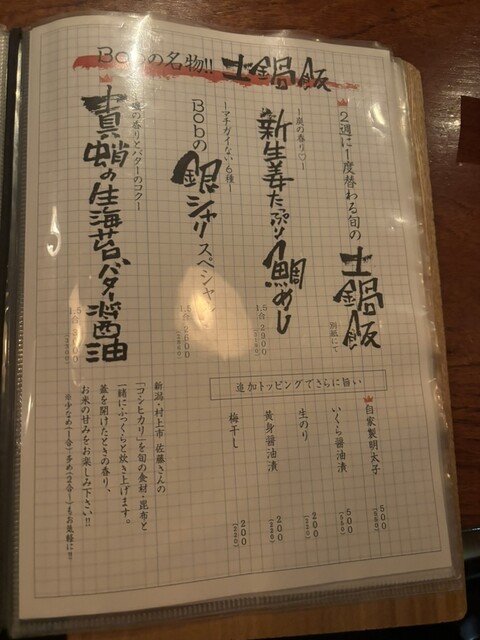 Bobの名物!! 土鍋飯
2週に1度替わる旬の
土鍋飯
別紙にて
新生姜たっぷり鯛めし
1.5合 2900
Bobの銀シャリスペシャル
ーマチガイない6種ー
1.5合 2600
真蛸の生海苔バター醤油
追加トッピングでさらに旨い
自家製明太子 500 (550)
いくら醤油漬 500 (550)
生のり 200 (220)
黄身醤油漬 200 (220)
梅干し 200 (220)
新潟・村上市 佐藤さんの
「コシヒカリ」を旬の食材・昆布と
一緒にふっくらと炊き上げます。
蓋を開けたときの香り、
お米の甘みをお楽しみ下さい!!
※少なめ(1合)多め(2合)もお気軽に!!